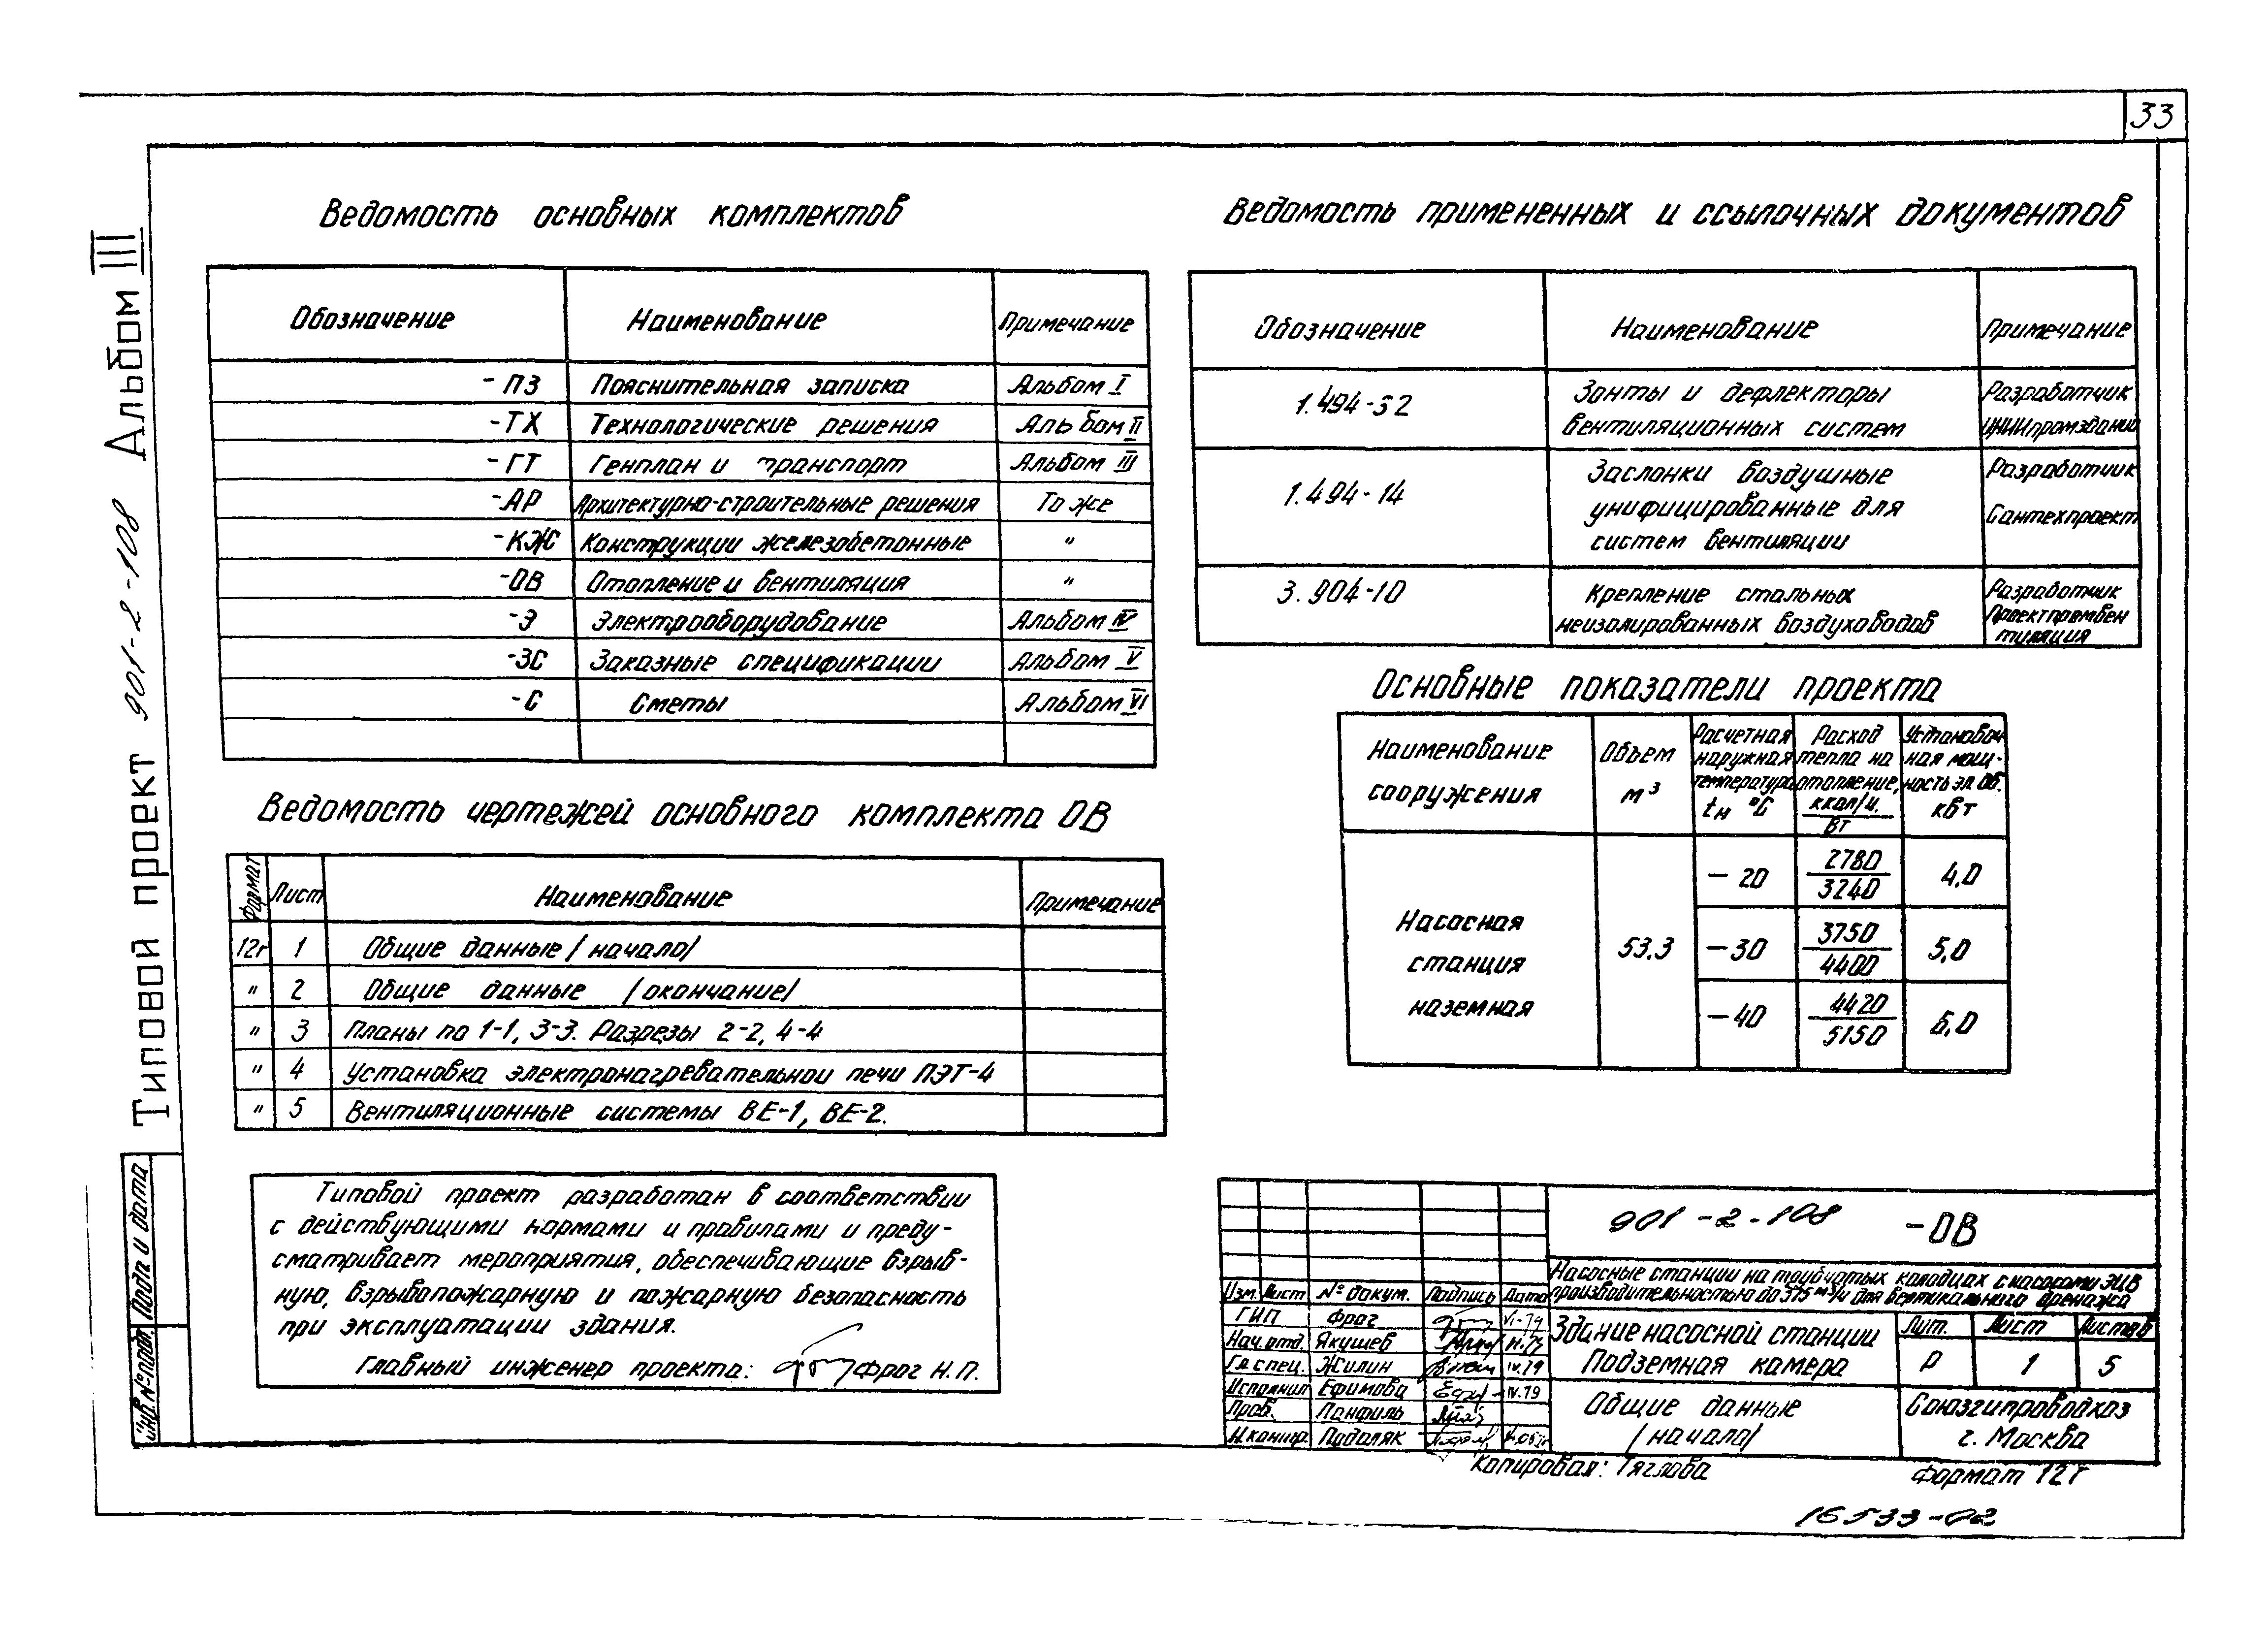 33
Типовой проект 901-2-108 Альбом III
Ведомость основных комплектов
Обозначение Наименование Примечание
-ПЗ Пояснительная записка Альбом I
-ТХ Технологические решения Альбом II
-ГТ Генплан и транспорт Альбом III
-АР Архитектурно-строительные решения То же
-КЖ Конструкции железобетонные "
-ОВ Отопление и вентиляция "
-Э Электрооборудование Альбом IV
-ЗС Заказные спецификации Альбом V
-С Сметы Альбом VI
Ведомость чертежей основного комплекта ОВ
Формат Лист Наименование Примечание
12г 1 Общие данные /начало/
" 2 Общие данные /окончание/
" 3 Планы по 1-1, 3-3. Разрезы 2-2, 4-4
" 4 Установка электронагревательной печи ПЭТ-4
" 5 Вентиляционные системы ВЕ-1, ВЕ-2.
Типовой проект разработан в соответствии
с действующими нормами и правилами и преду-
сматривает мероприятия, обеспечивающие взрыв-
ную, взрывопожарную и пожарную безопасность
при эксплуатации здания.
Главный инженер проекта: Фрог Н.П.
Ведомость примененных и ссылочных документов
Обозначение Наименование Примечание
1.494-32 Зонты и дефлекторы Разработчик
вентиляционных систем ЦНИИпромзданий
1.494-14 Заслонки воздушные Разработчик
унифицированные для Сантехпроект
систем вентиляции
3.904-10 Крепление стальных Разработчик
неизолированных воздуховодов Проектпромвен
тиляция
Основные показатели проекта
Наименование сооружения
Объем м³
Расчетная наружная температура tн °С
Расход тепла на отопление, ккал/ч. Вт
Установоч ная мощ- ность эл. об. кВт
Насосная станция наземная
53.3
-20 2780 3240 4,0
-30 3750 4400 5,0
-40 4420 5150 6,0
901-2-108 -ОВ
Насосные станции на трубчатых колодцах с насосами ЭЦВ
производительностью до 375 м³/ч для вертикального дренажа
Изм. Лист № докум. Подпись Дата
ГИП Фрог VI-79
Нач. отд. Якушев
Гл. спец. Жилин IV.79
Исполнил Ефимова IV.79
Пров. Панфиль
Н.контр. Подоляк
Здание насосной станции
Подземная камера
Лит. Лист Листов
Р 1 5
Общие данные
/начало/
Союзгипроводхоз
г. Москва
Копировал: Тяглова
Формат 12г
16533-02
Подп и дата
Инв. № подл.